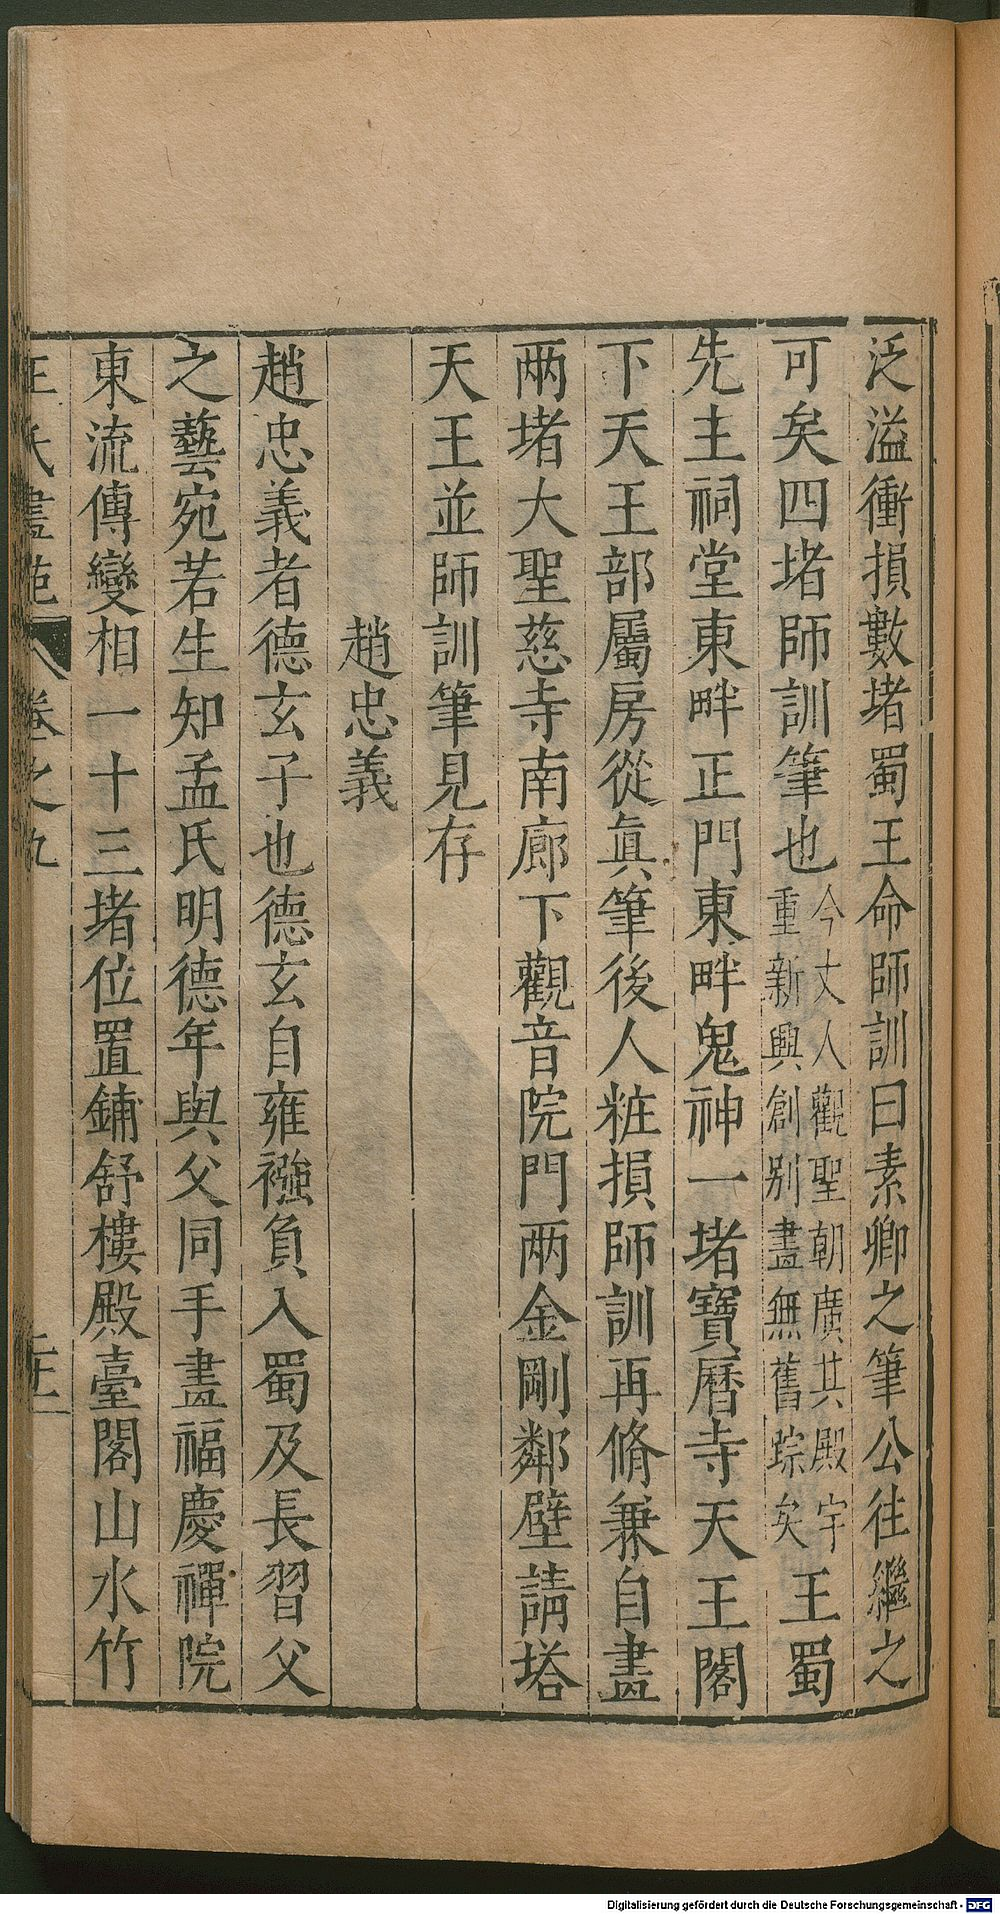 泛溢衝損數堵蜀王命師訓曰素卿之筆公往繼之
可矣四堵師訓筆也今丈人觀聖朝廣其殿宇重新興創别畫無舊踪矣王蜀
先主祠堂東畔正門東畔鬼神一堵寶曆寺天王閣
下天王部屬房從眞筆後人粧損師訓再脩兼自畫
兩堵大聖慈寺南廊下觀音院門兩金剛鄰壁請塔
天王並師訓筆見存
趙忠義
趙忠義者德玄子也德玄自雍襁負入蜀及長習父
之藝宛若生知孟氏明德年與父同手畫福慶禪院
東流傳變相一十三堵位置鋪舒樓殿臺閣山水竹
王氏畫苑 卷之九
Digitalisierung gefördert durch die Deutsche Forschungsgemeinschaft - DFG